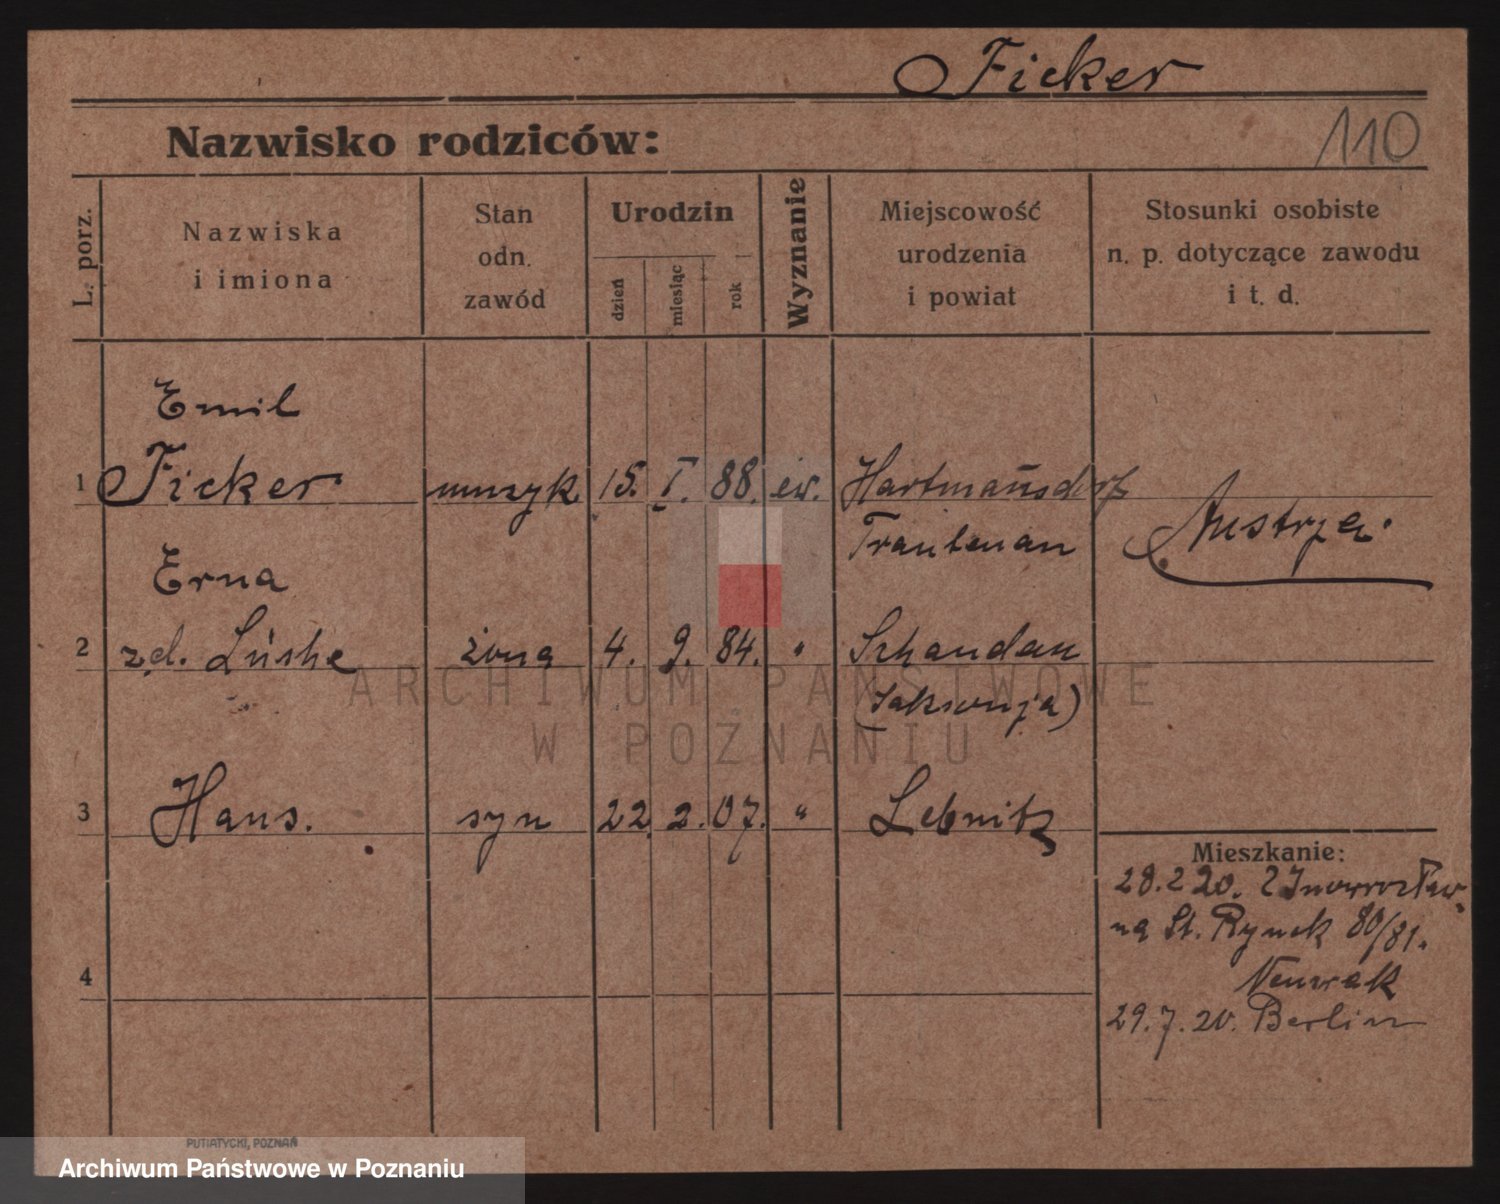 Ficker
Nazwisko rodziców:
110
L. porz.
Nazwiska
i imiona
Stan
odn.
zawód
Urodzin
dzień
miesiąc
rok
Wyznanie
Miejscowość
urodzenia
i powiat
Stosunki osobiste
n. p. dotyczące zawodu
i t. d.
Emil
1 Ficker muzyk 15. I. 88. ew. Hartmañsdorf
Trautenau
Austrya.
Erna
2 zd. żona 4. 9. 84. " Schandau
(Saksonja)
3 Hans. syn 22 2. 07. " Sebnitz
4
Mieszkanie:
28.2 20. Z Inowrocław.
na St. Rynek 80/81.
29.7.20. Berlin
PUTIATYCKI, POZNAŃ
ARCHIWUM PAŃSTWOWE
W POZNANIU
Archiwum Państwowe w Poznaniu